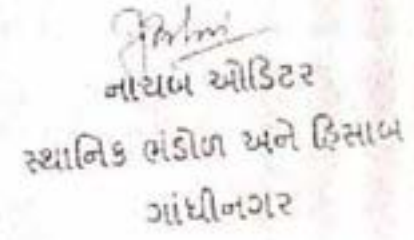 નાયબ ઓડિટર
સ્થાનિક ભંડોળ અને હિસાબ
ગાંધીનગર